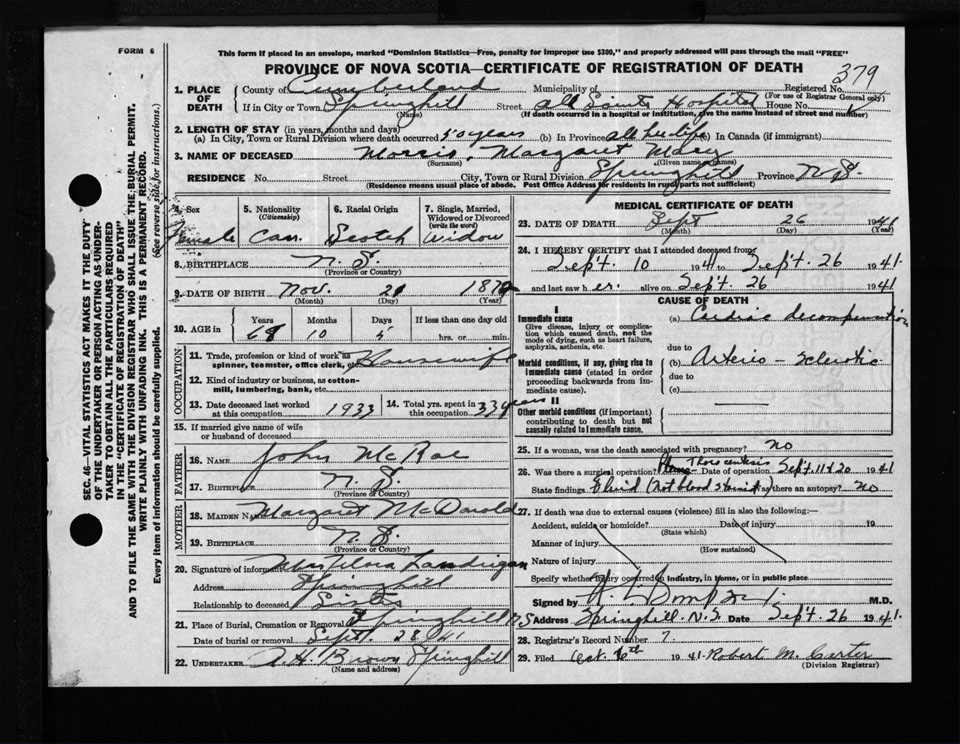 FORM 6
This form if placed in an envelope, marked "Dominion Statistics—Free, penalty for improper use $300," and properly addressed will pass through the mail "FREE"
PROVINCE OF NOVA SCOTIA—CERTIFICATE OF REGISTRATION OF DEATH
379
1. PLACE OF DEATH
County of Cumberland Municipality of Registered No.
(For use of Registrar General only)
If in City or Town Springhill Street All Saints Hospital House No.
(Name) (If death occurred in a hospital or institution, give the name instead of street and number)
2. LENGTH OF STAY (in years, months and days)
(a) In City, Town or Rural Division where death occurred 50 years (b) In Province all her life (c) In Canada (if immigrant)
3. NAME OF DECEASED Morris, Margaret Mary
(Surname) (Given names)
RESIDENCE No. Street City, Town or Rural Division Springhill Province N.S.
(Residence means usual place of abode. Post Office Address for residents in rural parts not sufficient)
4. Sex 5. Nationality (Citizenship) 6. Racial Origin 7. Single, Married, Widowed or Divorced (write the word)
Female Can. Scotch Widow
8. BIRTHPLACE N.S.
(Province or Country)
9. DATE OF BIRTH Nov. 21 187
(Month) (Day) (Year)
10. AGE in Years Months Days If less than one day old
10 5 hrs. or min.
OCCUPATION
11. Trade, profession or kind of work as spinner, teamster, office clerk, etc. Housewife
12. Kind of industry or business, as cotton-mill, lumbering, bank, etc.
13. Date deceased last worked at this occupation 1933 14. Total yrs. spent in this occupation 33 years
15. If married give name of wife or husband of deceased
FATHER
16. NAME John McRae
17. BIRTHPLACE N.S.
(Province or Country)
MOTHER
18. MAIDEN NAME Margaret McDonald
19. BIRTHPLACE N.S.
(Province or Country)
20. Signature of informant Mrs Flora Landrigan
Address Springhill
Relationship to deceased Sister
21. Place of Burial, Cremation or Removal Springhill N.S
Date of burial or removal Sept. 28 /41
22. UNDERTAKER A.H. Brown Springhill
(Name and address)
MEDICAL CERTIFICATE OF DEATH
23. DATE OF DEATH Sept 26 1941
(Month) (Day) (Year)
24. I HEREBY CERTIFY that I attended deceased from
Sept. 10 1941 to Sept. 26 1941.
and last saw her alive on Sept. 26 1941
CAUSE OF DEATH
I
Immediate cause
Give disease, injury or complication which caused death, not the mode of dying, such as heart failure, asphyxia, asthenia, etc.
(a) Cardiac decompensation
due to
Morbid conditions, if any, giving rise to immediate cause (stated in order proceeding backwards from immediate cause).
(b) Arterio-sclerotic
due to
(c)
II
Other morbid conditions (if important) contributing to death but not causally related to immediate cause.
25. If a woman, was the death associated with pregnancy? no
26. Was there a surgical operation? Thoracentesis Date of operation Sept. 11 & 20 1941
State findings Fluid (not blood stained) Was there an autopsy? no
27. If death was due to external causes (violence) fill in also the following:—
Accident, suicide or homicide? Date of injury 19
(State which)
Manner of injury
(How sustained)
Nature of injury
Specify whether injury occurred in industry, in home, or in public place
Signed by M.D.
Address Springhill. N.S. Date Sept. 26 1941.
28. Registrar's Record Number 7.
29. Filed Oct. 6th 1941 Robert M. Carter
(Division Registrar)
SEC. 46—VITAL STATISTICS ACT MAKES IT THE DUTY
OF THE UNDERTAKER OR PERSON ACTING AS UNDER-
TAKER TO OBTAIN ALL THE PARTICULARS REQUIRED
IN THE "CERTIFICATE OF REGISTRATION OF DEATH"
AND TO FILE THE SAME WITH THE DIVISION REGISTRAR WHO SHALL ISSUE THE BURIAL PERMIT.
WRITE PLAINLY WITH UNFADING INK. THIS IS A PERMANENT RECORD.
Every item of information should be carefully supplied. (See reverse side for instructions.)